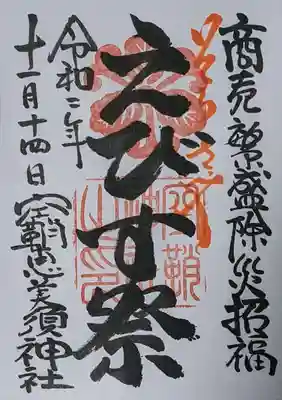 商売繁盛除災招福
えびす祭
令和二年
十一月十四日 空鞘恵美須神社